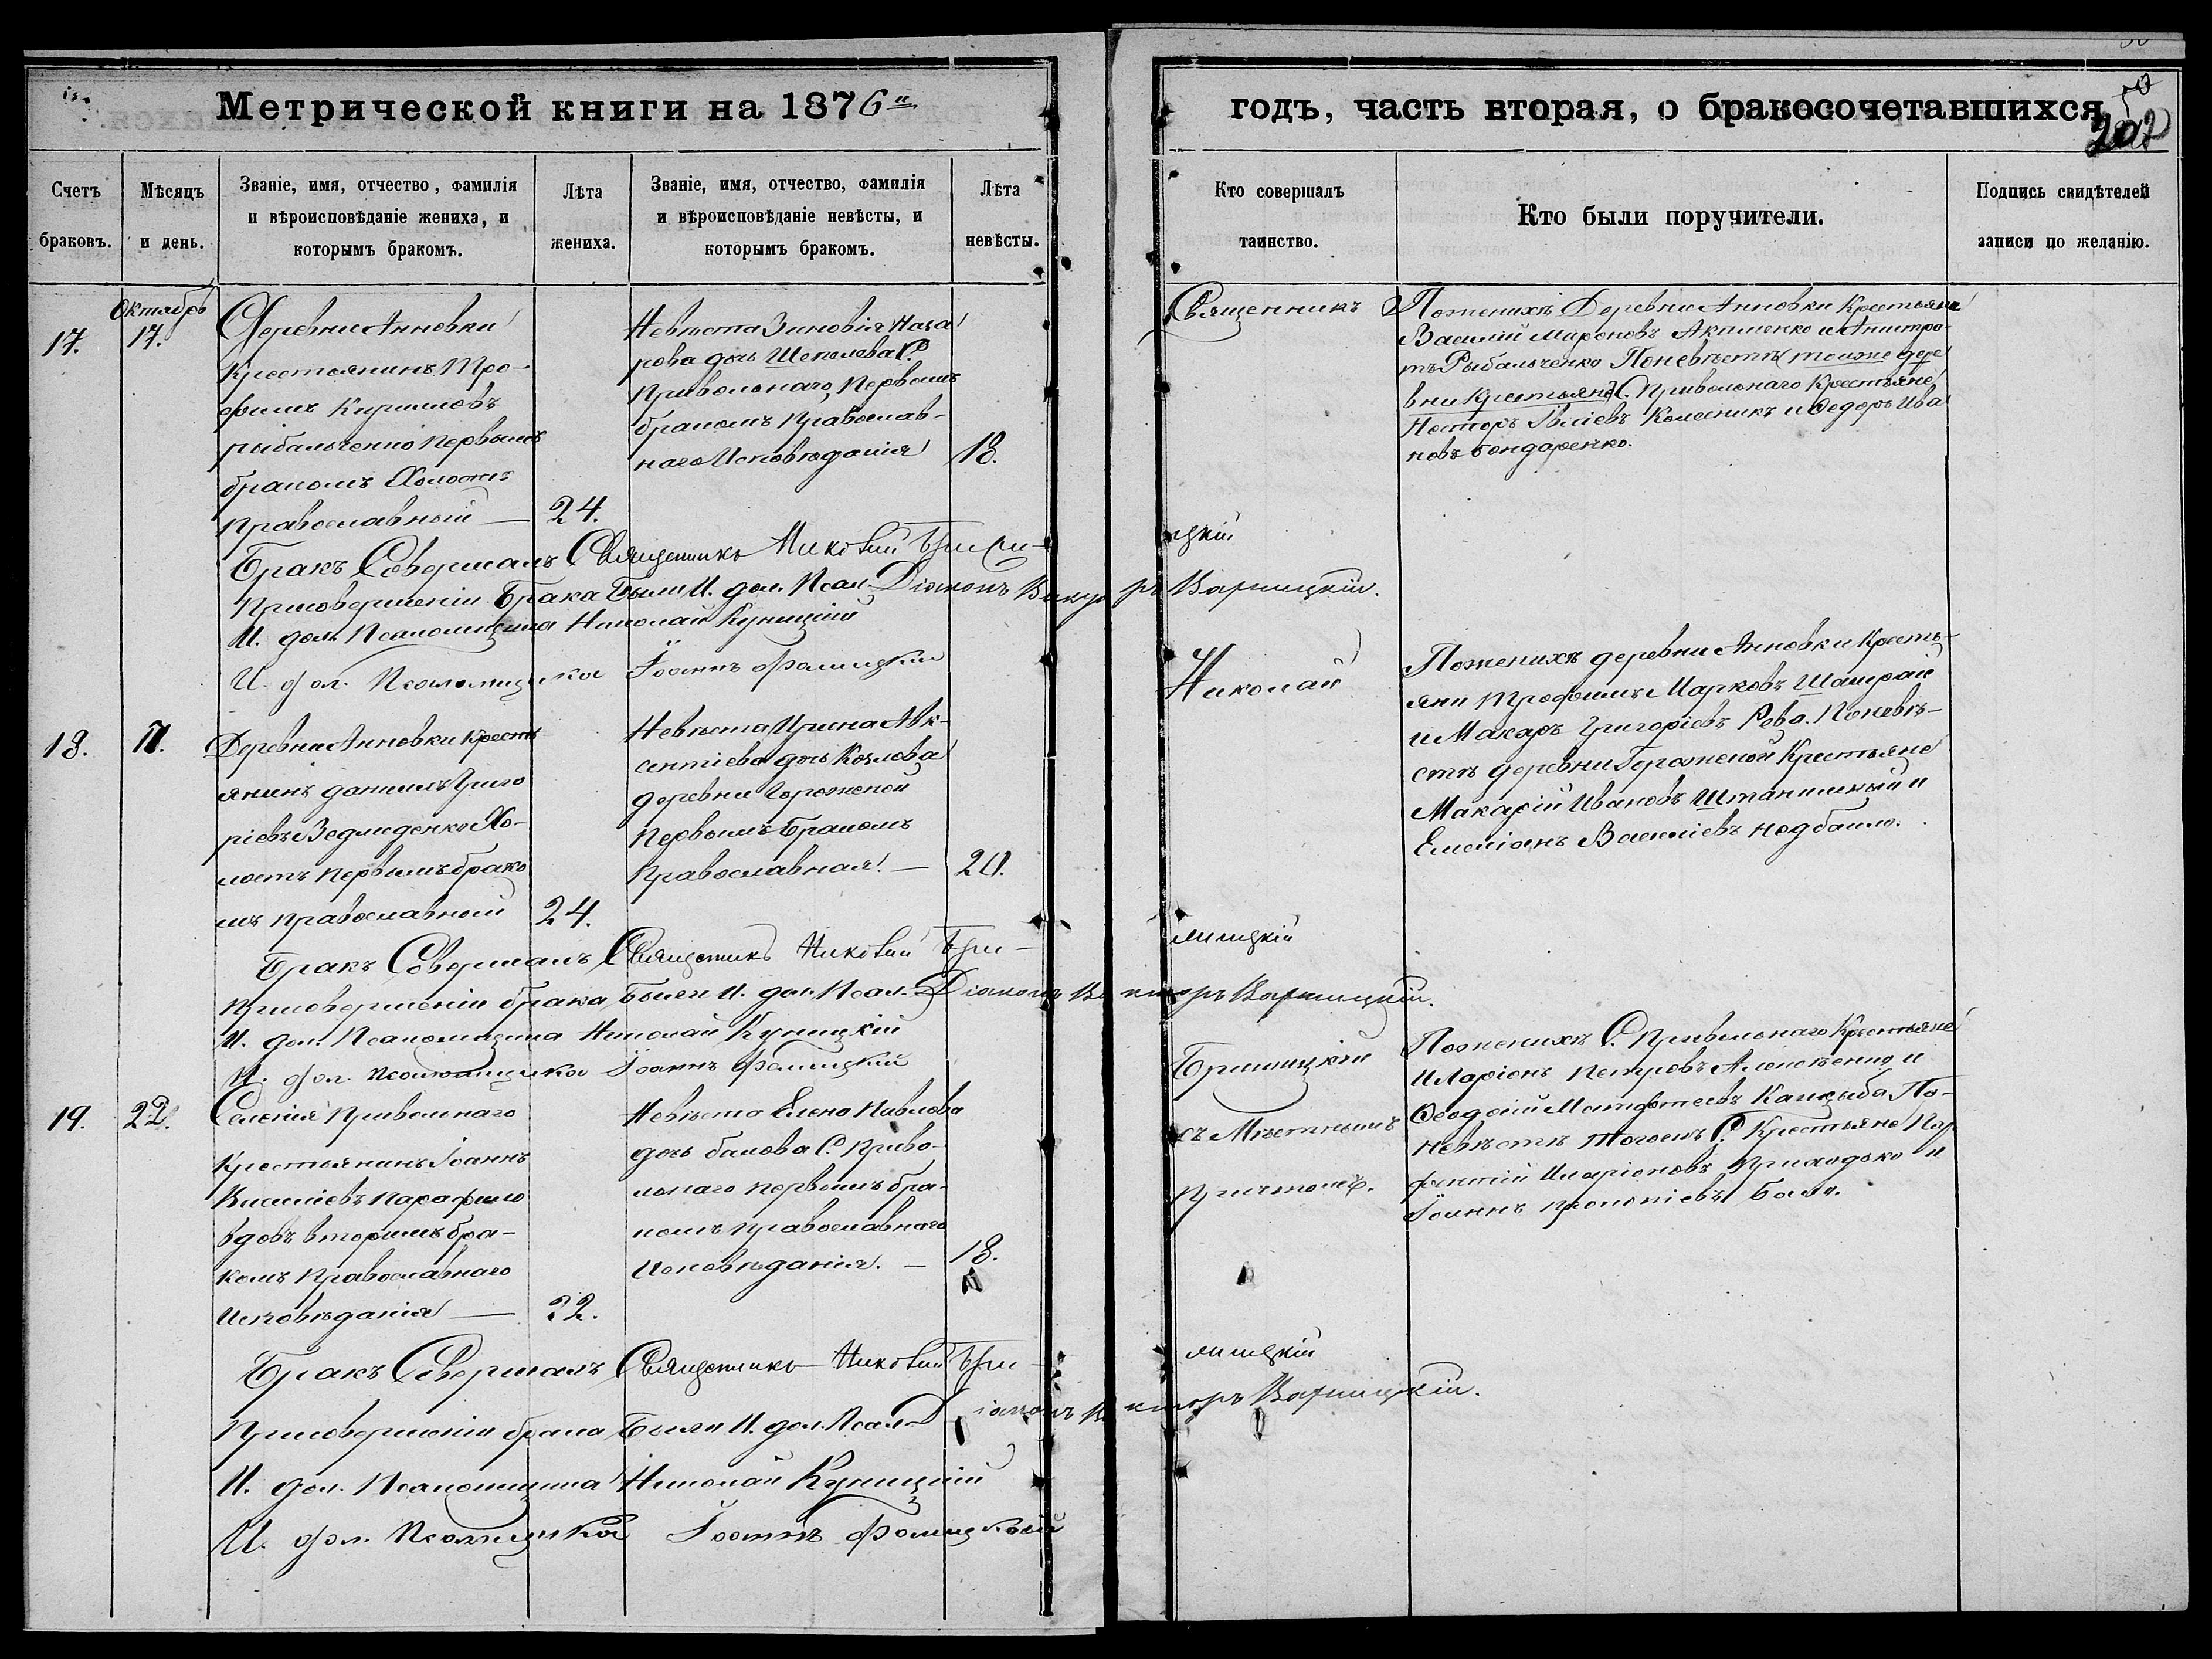 Метрической книги на 1876
годъ, часть вторая, о бракосочетавшихся
50
202
Счетъ браковъ.
Мѣсяцъ и день.
Званіе, имя, отчество, фамилія
и вѣроисповѣданіе жениха, и
которымъ бракомъ.
Лѣта жениха.
Званіе, имя, отчество, фамилія
и вѣроисповѣданіе невѣсты, и
которымъ бракомъ.
Лѣта невѣсты.
Кто совершалъ таинство.
Кто были поручители.
Подпись свидѣтелей
записи по желанію.
17.
Октябрь
17.
Деревни Анновки
Крестьянинъ Тро-
фимъ Кириловъ
рыбальченко первымъ
бракомъ Холостъ
православный —
24.
Невѣста Зиновія Наза
рова дочь Шеполева С.
Привольнаго, Первымъ
бракомъ Православ-
наго Исповѣданія
18.
Священникъ
Поженихѣ Деревни Анновки Крестьяне
Василій Мироновъ Акименко и Анитра-
тъ Рыбальченко Поневѣстѣ (тоиже дере
вни Крестьяне) С. Привольнаго Крестьяне
Несторъ Колесникъ и Федоръ Ива
новъ бондаренко.
Бракъ Совершалъ Священникъ Николай Бри
ицкій
Присовершеніи Брака Были И. дол. Псал. Діаконъ Викто ръ Варницкій.
И. дол. Псаломщика Николай Куницкій
И. дол. Псаломщика Іоаннъ Фомицкій
18.
17.
Деревни Анновки Кресть
янинъ даниилъ Григо
ріевъ Хо-
лостъ первымъ брако
мъ православный
24.
Невѣста Ирина Авк-
сентіева дочь Козлова
деревни Гороженой
первымъ бракомъ
Православная. —
20.
Николай
Поженихѣ деревни Анновки Кресть-
яне Трофимъ Марковъ Шамрай
и Макаръ Григоріевъ Рева. Поневѣ-
стѣ деревни Гороженой Крестьяне
Макарій Ивановъ и
Емеліянъ Василіевъ надбайло.
Бракъ Совершалъ Священникъ Николай Бри-
лицкій
Присовершеніи брака, Были И. дол. Псал. Діаконъ Ви кторъ Варницкій.
И. дол. Псаломщика Николай Куницкій
И. дол. Псаломщика Іоаннъ Фомицкій
19.
22.
Селенія Привольнаго
Крестьянинъ Іоаннъ
Василіевъ Парафило
вдовъ вторымъ бра-
комъ православнаго
Исповѣданія —
22.
Невѣста Елена Павлова
дочь С. Приво-
льнаго первымъ бра-
комъ православнаго
Исповѣданія. —
18.
съ Мѣстнымъ
причтомъ.
Поженихѣ С. Привольнаго Крестьяне
Иларіонъ Петровъ и
Феодосій Матфеевъ По-
невѣстѣ тогожъ С. Крестьяне Пар
фентій Иларіоновъ Приходько и
Іоаннъ
Бракъ Совершалъ Священникъ Николай Бри-
лицкій
Присовершеніи брака, Были И. дол. Псал. Діаконъ Ви кторъ Варницкій.
И. дол. Псаломщика Николай Куницкій
И. дол. Псаломщика Іоаннъ Фомицкій